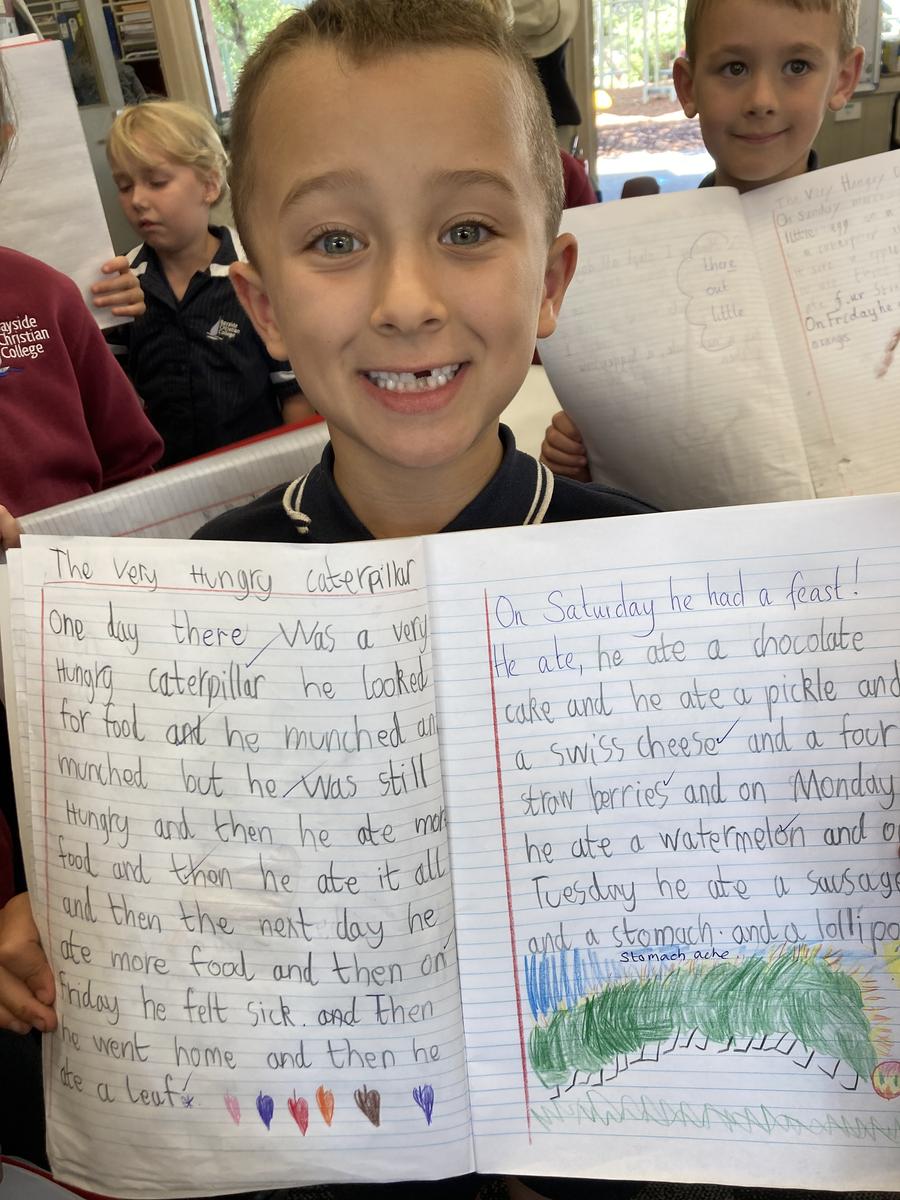 The Very Hungry caterpillar
One day there Was a very
Hungry caterpillar he looked
for food and he munched an
munched but he Was still
Hungry and then he ate mor
food and then he ate it all
and then the next day he
ate more food and then on
friday he felt sick. and Then
he went home and then he
ate a leaf.
On Saturday he had a feast!
He ate, he ate a chocolate
cake and he ate a pickle and
a swiss cheese and a four
straw berries and on Monday
he ate a watermelon and o
Tuesday he ate a sausage
and a stomach. and a lollipo
Stomach ache
ayside
Christian
College
Bayside
Christian
College
there
out
little
The Very Hungry
On Sunday
little egg
four
On Friday he
oranges